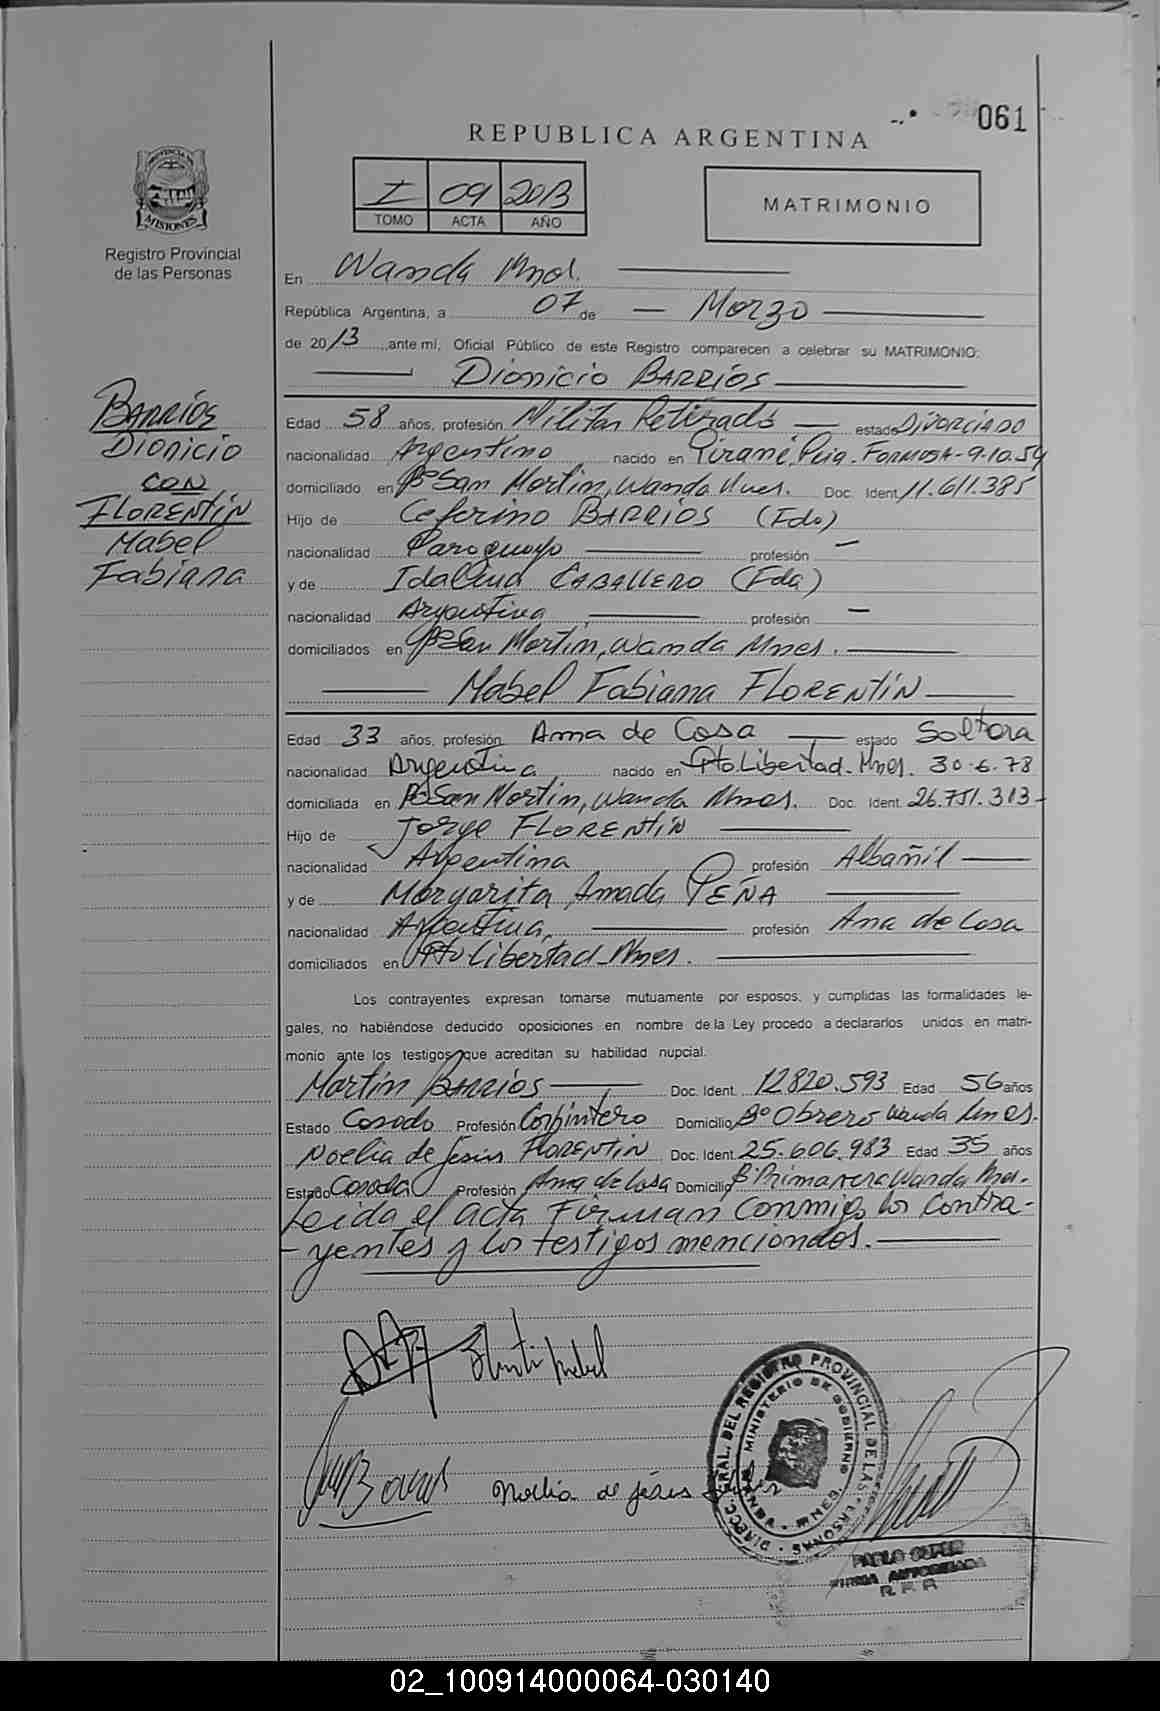 061
REPUBLICA ARGENTINA
I 09 2013
TOMO ACTA AÑO
MATRIMONIO
PROVINCIA DE
MISIONES
Registro Provincial
de las Personas
En Wanda Mnes.
República Argentina, a 07 de — Marzo
de 2013, ante mí, Oficial Público de este Registro comparecen a celebrar su MATRIMONIO:
Dionicio BARRIOS
BARRIOS
Dionicio
CON
FLORENTÍN
Mabel
Fabiana
Edad 58 años, profesión Militar Retirado — estado DIVORCIADO
nacionalidad Argentino nacido en Pirané, Pcia. FORMOSA - 9.10.54
domiciliado en Bº San Martin, Wanda Mnes. Doc. Ident. 11.611.385
Hijo de Ceferino BARRIOS (Fdo)
nacionalidad Paraguayo — profesión —
y de Idalina CABALLERO (Fda)
nacionalidad Argentina — profesión —
domiciliados en Bº San Martín, Wanda Mnes.
Mabel Fabiana FLORENTÍN
Edad 33 años, profesión Ama de Casa — estado Soltera
nacionalidad Argentina nacido en Pto. Libertad - Mnes. 30-6-78
domiciliada en Bº San Martin, Wanda Mnes. Doc. Ident. 26.751.313-
Hijo de Jorge FLORENTÍN
nacionalidad Argentina profesión Albañil
y de Margarita Amada PEÑA
nacionalidad Argentina, profesión Ama de Casa
domiciliados en Pto Libertad - Mnes.
Los contrayentes expresan tomarse mutuamente por esposos, y cumplidas las formalidades le-
gales, no habiéndose deducido oposiciones en nombre de la Ley procedo a declararlos unidos en matri-
monio ante los testigos que acreditan su habilidad nupcial.
Martín BARRIOS Doc. Ident. 12820.593 Edad 56 años
Estado Casado Profesión Carpintero Domicilio Bº Obrero Wanda Mnes.
Noelia de Jesús FLORENTIN Doc. Ident. 25.606.983 Edad 35 años
Estado Casada Profesión Ama de Casa Domicilio Bº Primavera Wanda Mnes.
Leida el acta Firman conmigo los contra-
-yentes y los testigos mencionados.
Noelia de jesús
DIRECC. GRAL. DEL REGISTRO PROVINCIAL DE LAS PERSONAS
MINISTERIO DE GOBIERNO
WANDA - MNES.
FIRMA AUTORIZADA
R. P. P.
02_100914000064-030140